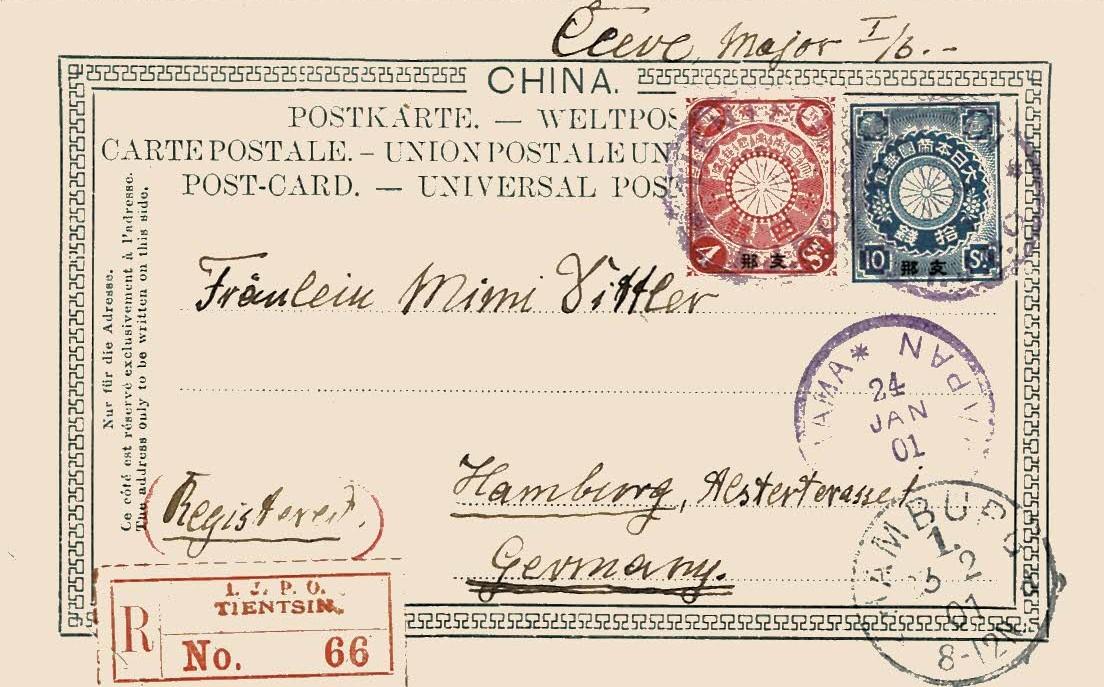 Major I/6.-
CHINA.
POSTKARTE. — WELTPOS
CARTE POSTALE. – UNION POSTALE UN
POST-CARD. — UNIVERSAL POS
4 Sn
支那
大日本帝國郵便
拾錢
10 Sn
支那
Nur für die Adresse.
Ce côté est réservé exclusivement à l'adresse.
The address only to be written on this side.
Fräulein Mimi Dittler
AMA * JAPAN
24
JAN
01
Hamburg, Alsterterasse 1
Registered.
Germany.
HAMBURG
1.
2
01
8-12N
I. J. P. O.
TIENTSIN.
R
No. 66